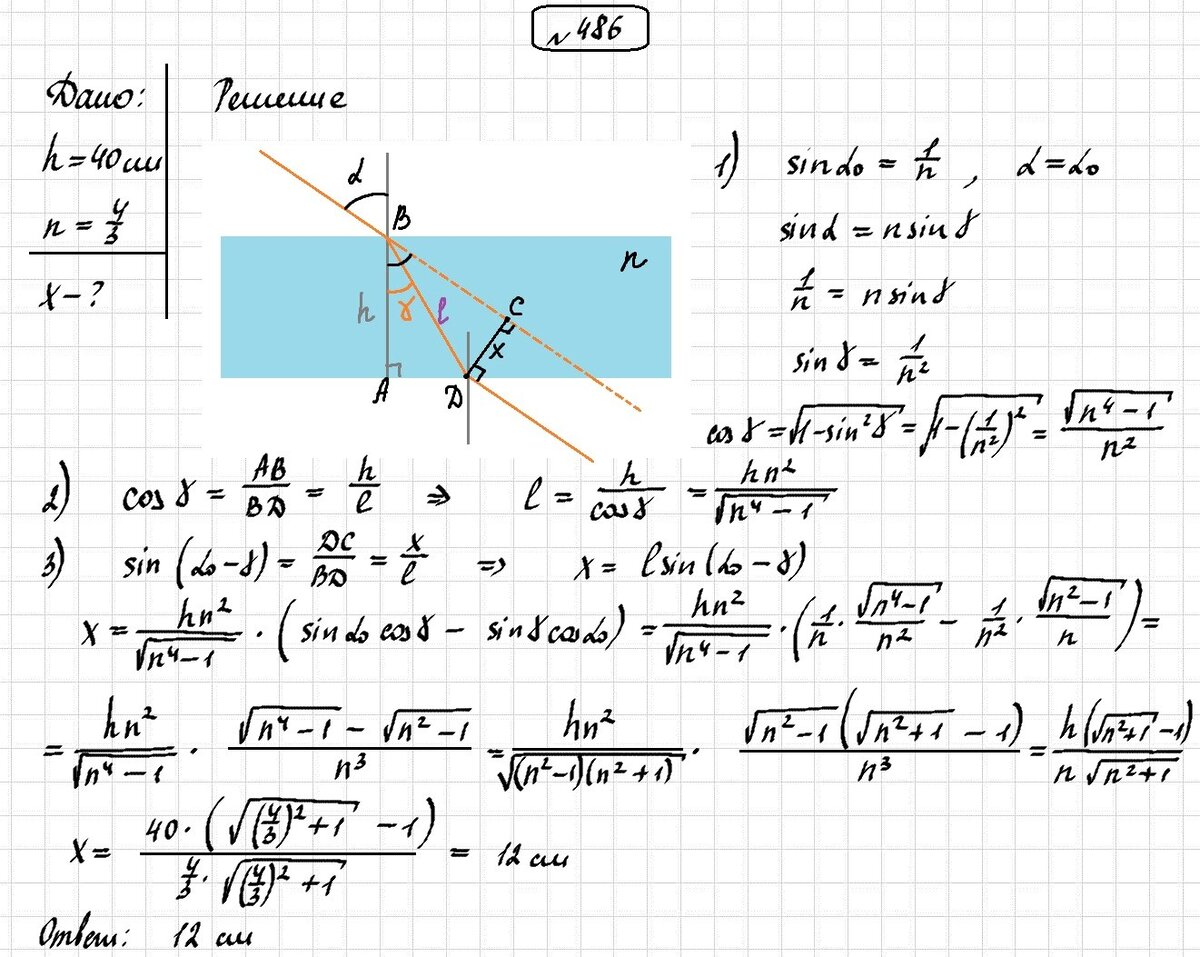 № 486
Дано:
h = 40 см
n = 4/3
x - ?
Решение
α
B
n
h γ l
C
x
A
D
1) sin α₀ = 1/n , α = α₀
sin α = n sin γ
1/n = n sin γ
sin γ = 1/n²
cos γ = √(1-sin²γ) = √(1-(1/n²)²) = √(n⁴-1)/n²
2) cos γ = AB/BD = h/l ⇒ l = h/cos γ = hn²/√(n⁴-1)
3) sin (α₀-γ) = DC/BD = x/l ⇒ x = l sin (α₀-γ)
x = hn²/√(n⁴-1) · (sin α₀ cos γ - sin γ cos α₀) = hn²/√(n⁴-1) · (1/n · √(n⁴-1)/n² - 1/n² · √(n²-1)/n) =
= hn²/√(n⁴-1) · (√(n⁴-1) - √(n²-1))/n³ = hn²/√((n²-1)(n²+1)) · √(n²-1)(√(n²+1) - 1)/n³ = h(√(n²+1)-1)/(n√(n²+1))
x = 40·(√((4/3)²+1) - 1)/(4/3·√((4/3)²+1)) = 12 см
Ответ: 12 см